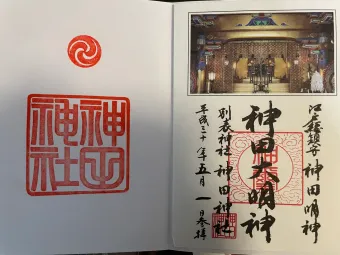 神田神社
江戸総鎮守 神田明神
神田大明神
別表神社 神田神社
平成三十年五月一日参拝